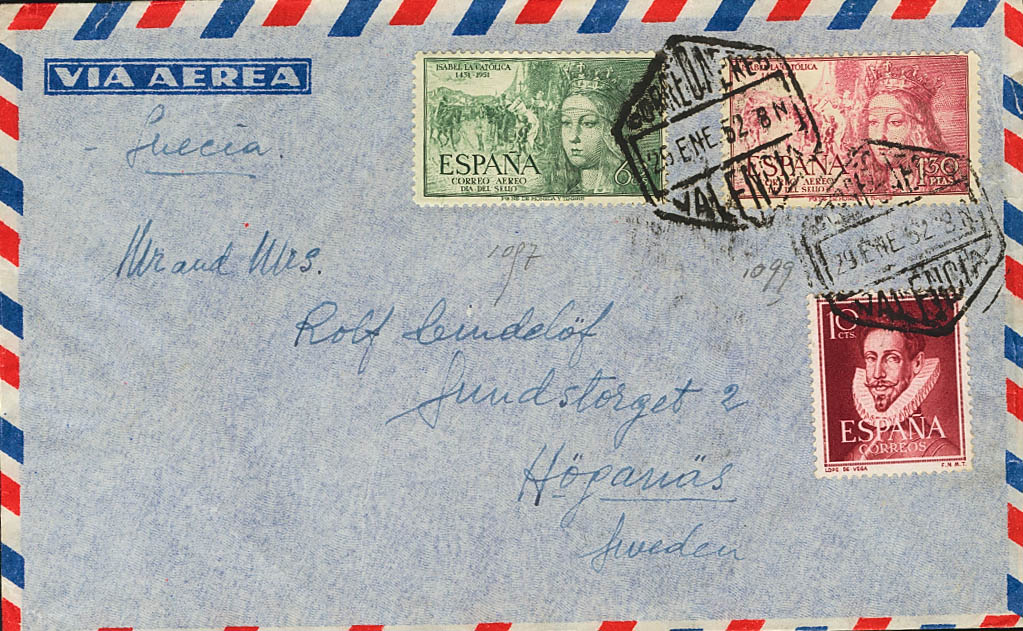 VIA AEREA
- Suecia.
ISABEL LA CATÓLICA
1451-1951
ESPAÑA
CORREO AEREO
DIA DEL SELLO
ESPAÑA
CORREO AEREO
DIA DEL SELLO
1,30
PTAS
25 ENE. 52 8 N
VALENCIA
29 ENE 52 8 N
VALENCIA
Mr and Mrs.
1097
1099
Rolf
Sundstorget 2
Höganäs
Sweden
10
CTS.
ESPAÑA
CORREOS
LOPE DE VEGA F.N.M.T.